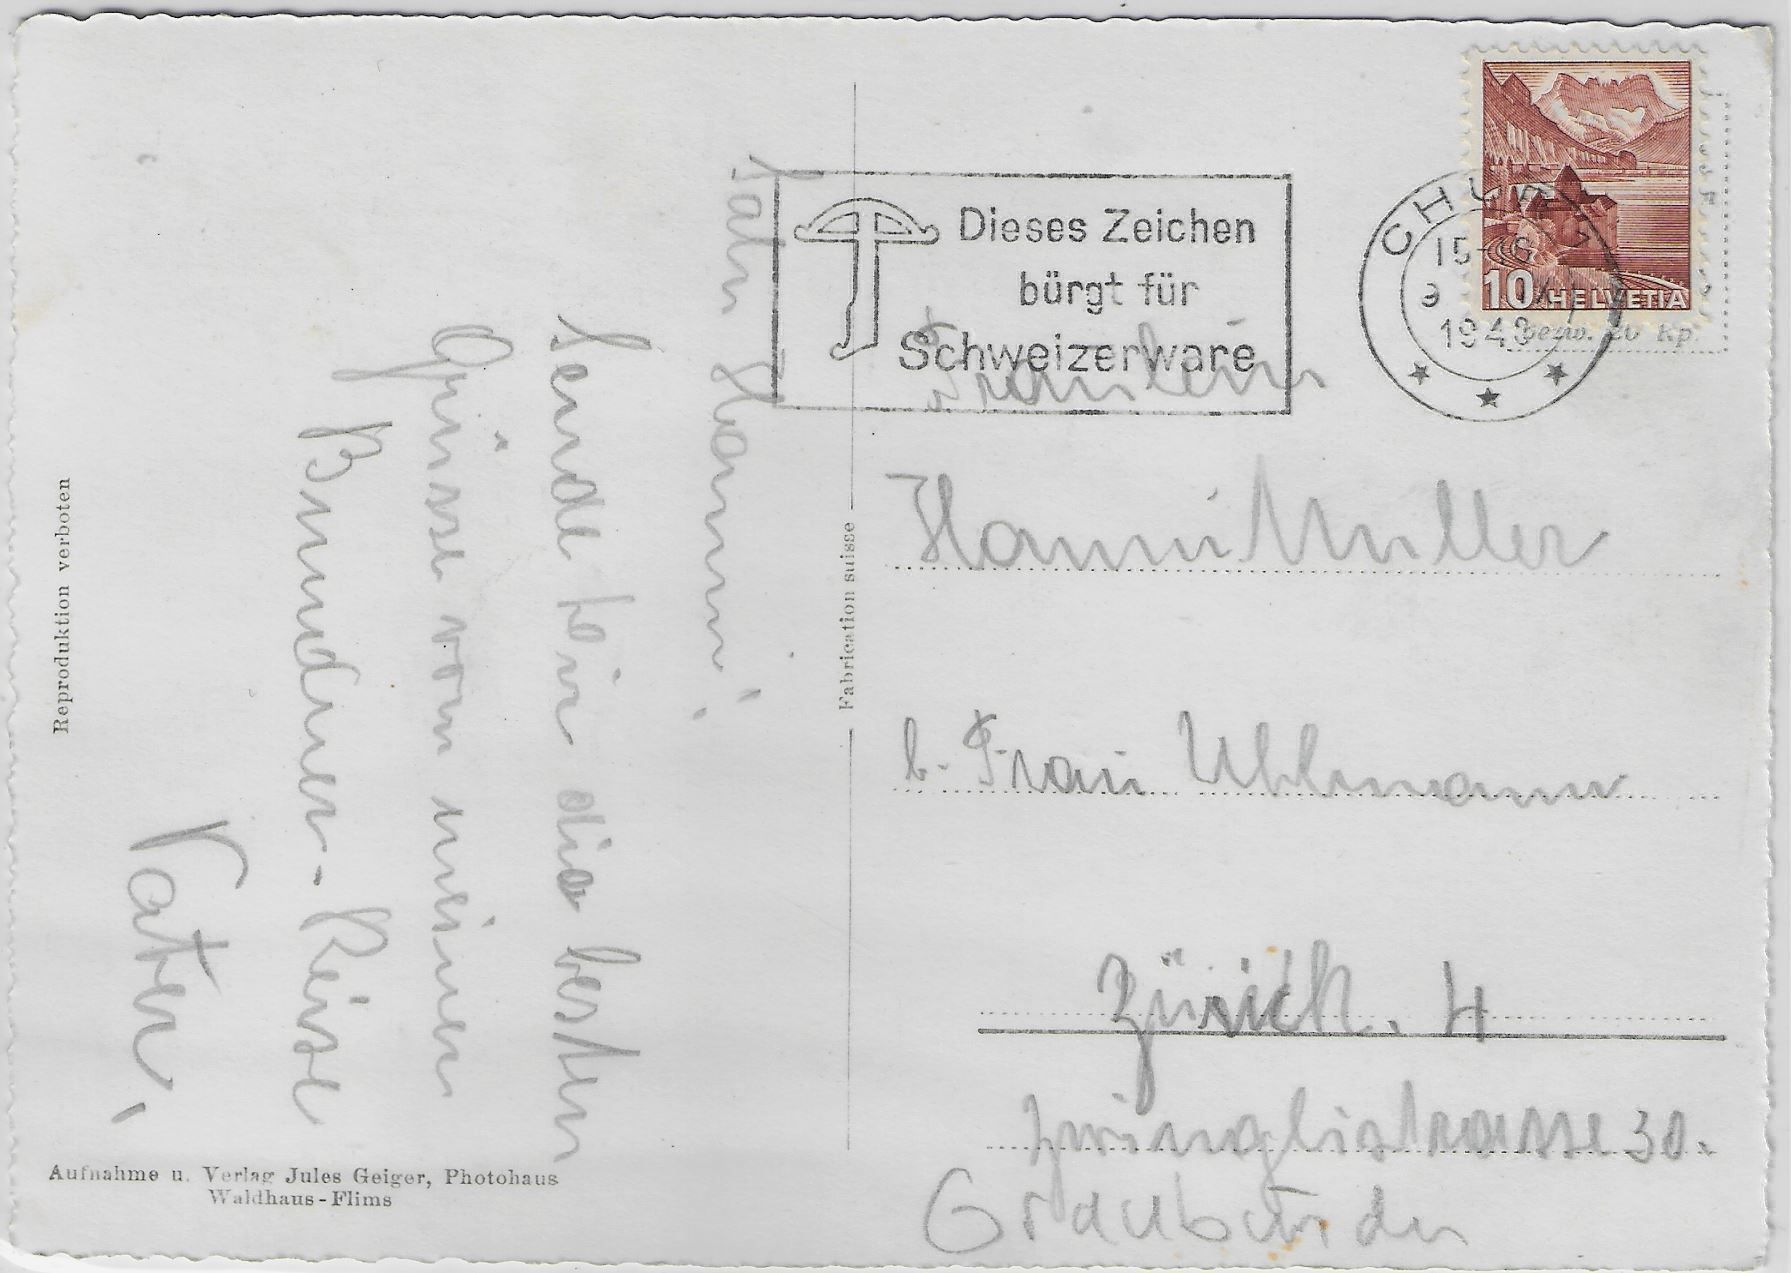 Hanni!
Sende dir die besten
Grüsse von meiner
Bündner-Reise
Vater.
Reproduktion verboten
Aufnahme u. Verlag Jules Geiger, Photohaus
Waldhaus-Flims
Fabrication suisse
Dieses Zeichen
bürgt für
Schweizerware
CHUR
15-16
9
10 HELVETIA
Fräulein
Hanni Müller
b. Frau Uhlmann
Zürich. 4
Zwinglistrasse 30.
Graubünden